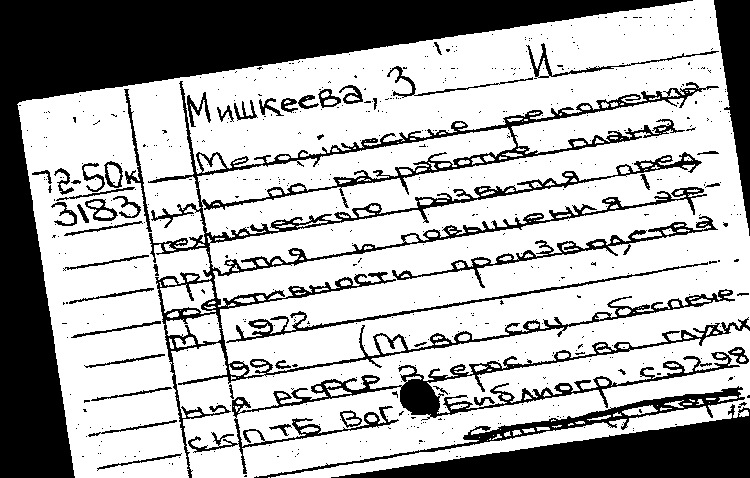 Мишкеева, З И.
72-50к
3183
Методические рекоменда
ции по разработке плана
технического развития пред-
приятия и повышения эф-
фективности производства.
М. 1972
99с. (М-во соц обеспече-
ния РСФСР Всерос. о-во глухих
СКПТБ ВОГ Библиогр: с.97-98
15